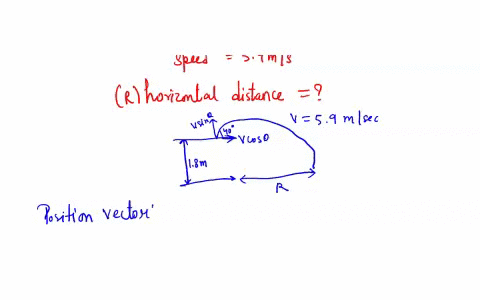 speed = 5.9 m/s
(R) horizontal distance = ?
vsinθ
40°
vcosθ
V = 5.9 m/sec
1.8m
R
Position vector